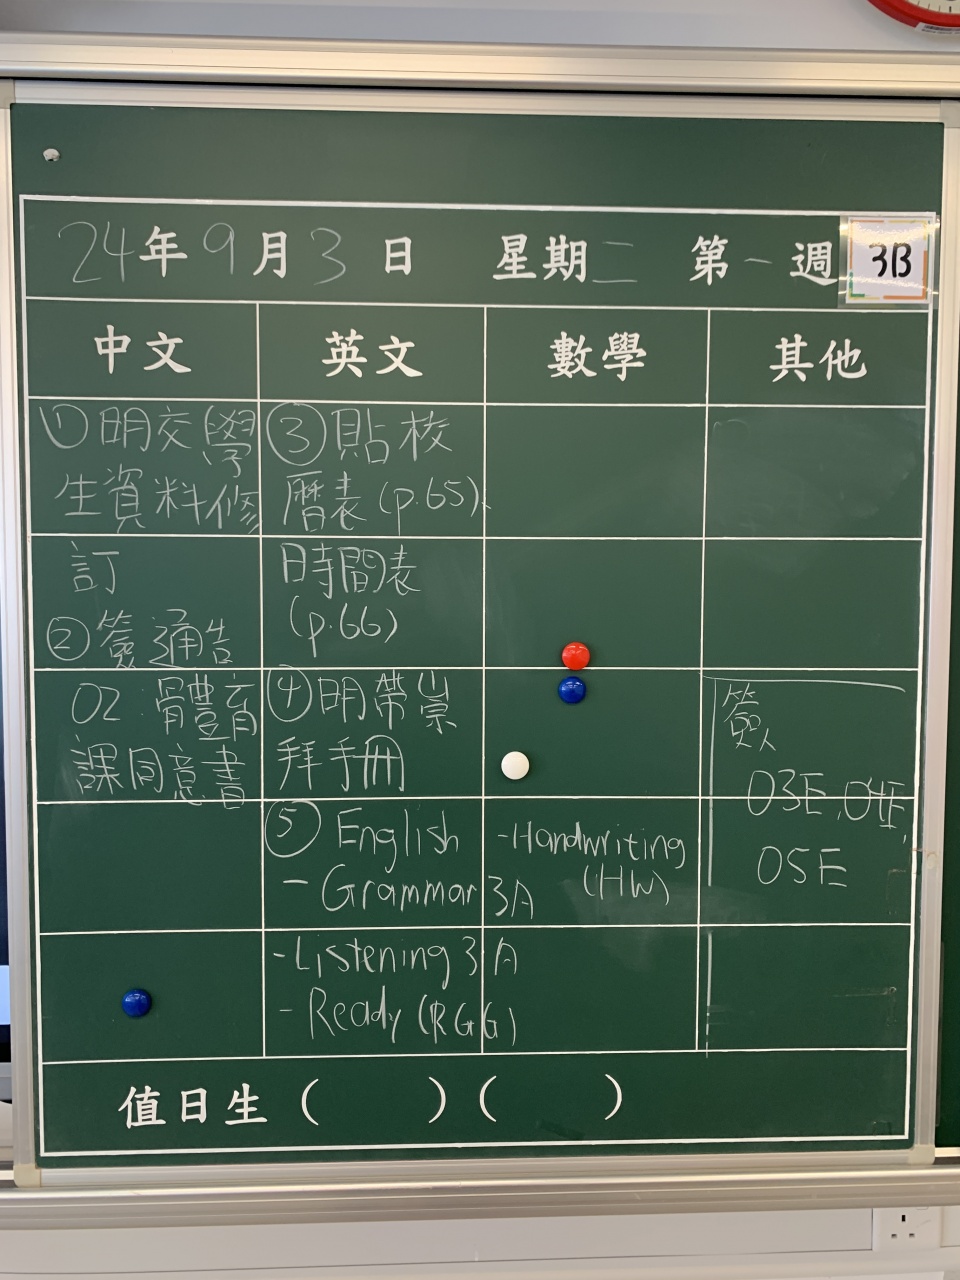 24年9月3日 星期二 第一週 3B
中文 英文 數學 其他
①明交學
生資料修
訂
②簽通告
02:體育
課同意書
③貼校
曆表(p.65)、
時間表
(p.66)
④明帶崇
拜手冊
⑤ English
- Grammar 3A
- Listening 3A
- Ready (RGG)
- Handwriting
(HW)
簽
03E, 04E,
05E
值日生 ( ) ( )